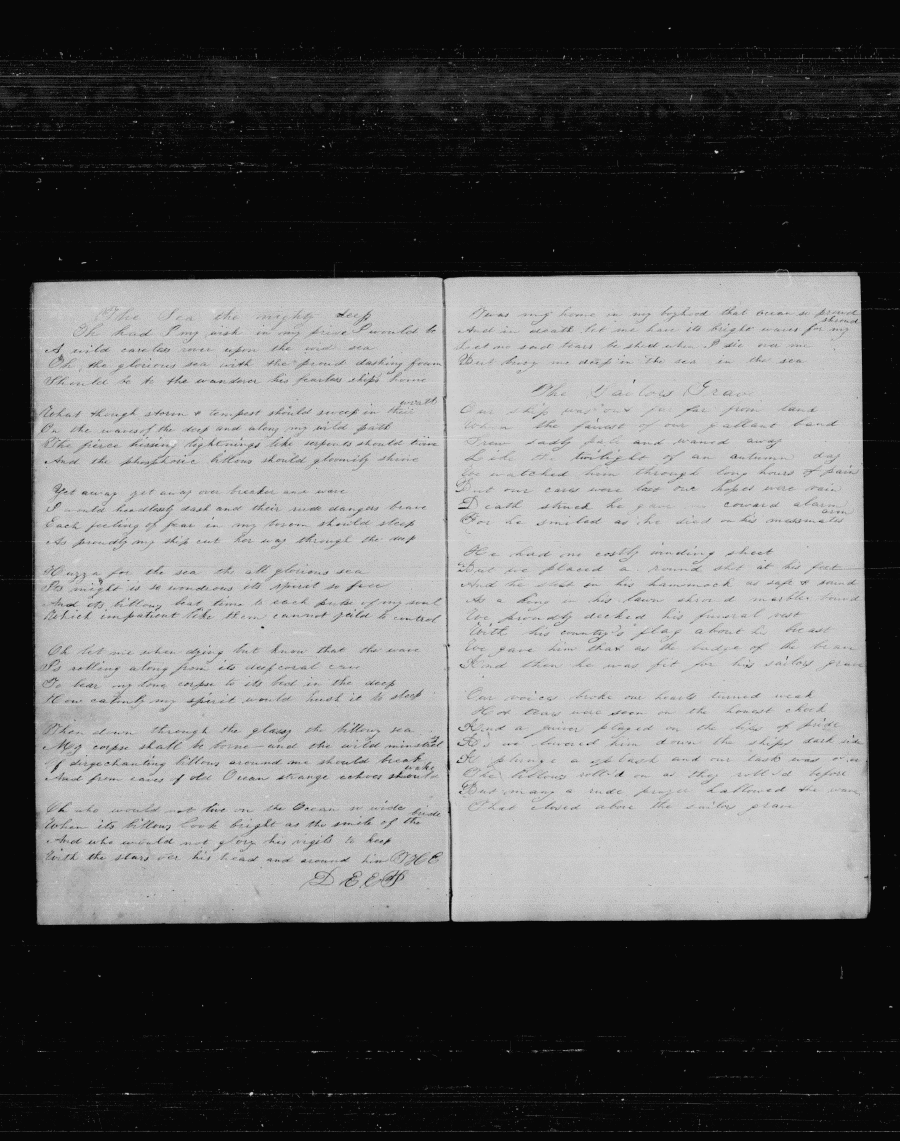 The Sea the mighty deep
Oh had I my wish in my pride I would be
A wild careless rover upon the wide sea
Oh the glorious sea with the proud dashing foam
Should be to the wanderer his fearless ships home
What though storm & tempest should sweep in their wrath
On the waves of the deep and along my wild path
The fierce hissing lightnings like serpents should twine
And the phosphoric billows should gloomily shine
Yet away yet away over breaker and wave
I would heedlessly dash and their rude dangers brave
Each feeling of fear in my bosom should sleep
As proudly my ship cut her way through the deep
Huzza for the sea the all glorious sea
Its might is so wondrous its spirit so free
And its billows beat time to each pulse of my soul
Which impatient like them cannot yeild to control
Oh let me when dying but know that the wave
Is rolling along from its deep coral cave
To bear my lone corpse to its bed in the deep
How calmly my spirit would hush it to sleep
When down through the glassy the billowy sea
My corpse shall be borne and the wild minstrelsy
Of dirge chanting billows around me should break
And from caves of old Ocean strange echoes should wake
Oh who would not live on the Ocean so wide
When its billows look bright as the smile of the bride
And who would not glory his vigils to keep
With the stars oer his head and around him THE
DEEP
Twas my home in my boyhood that ocean so proud
And in death let me have its bright waves for my shroud
Let no sad tears be shed when I die over me
But bury me deep in the sea in the sea
The Sailors Grave
Our ship was out far far from land
When the fairest of our gallant band
Grew sadly pale and waned away
Like the twilight of an autumn day
We watched him through long hours of pain
But our cares were lost our hopes were vain
Death struck he gave no coward alarm
For he smiled as he died on his messmates arm
He had no costly winding sheet
But we placed a round shot at his feet
And he slept in his hammock as safe & sound
As a king in his lawn shroud marble bound
We proudly decked his funeral vest
With his country's flag about his breast
We gave him that as the badge of the brave
And then he was fit for his sailors grave
Our voices broke our hearts turned weak
Hot tears were seen on the honest cheek
And a quiver played on the lips of pride
As we lowered him down the ships dark side
A plunge a splash and our task was o'er
The billows roll'd on as they roll'd before
But many a rude prayer hallowed the wave
That closed above the sailors grave